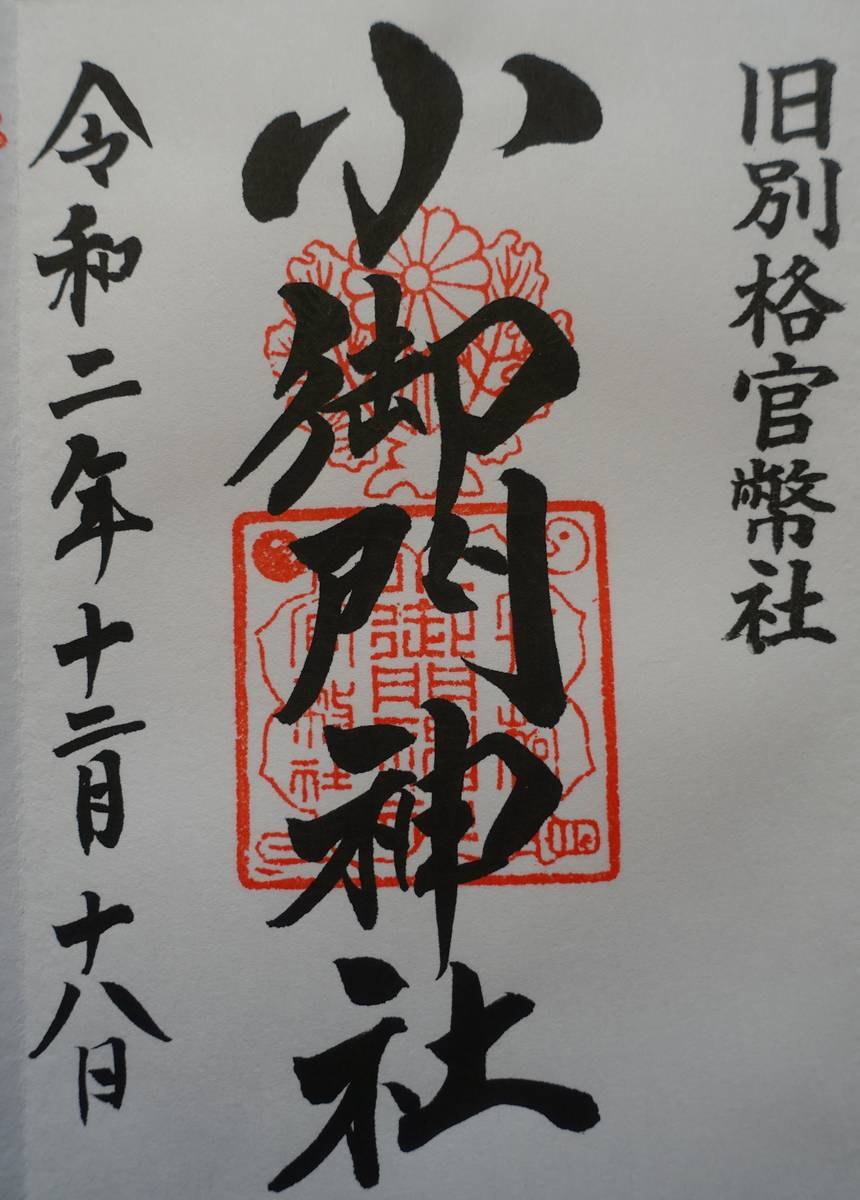 旧別格官幣社
小御門神社
令和二年十二月十八日